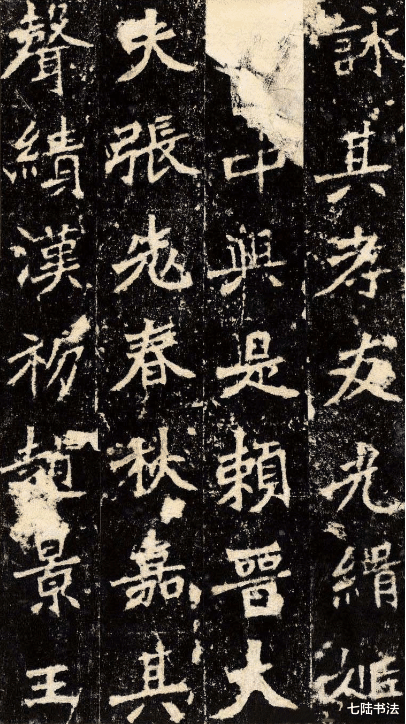 詠其孝友光緝姬
中興是賴晉大
夫張老春秋嘉其
聲績漢初趙景王
七陆书法